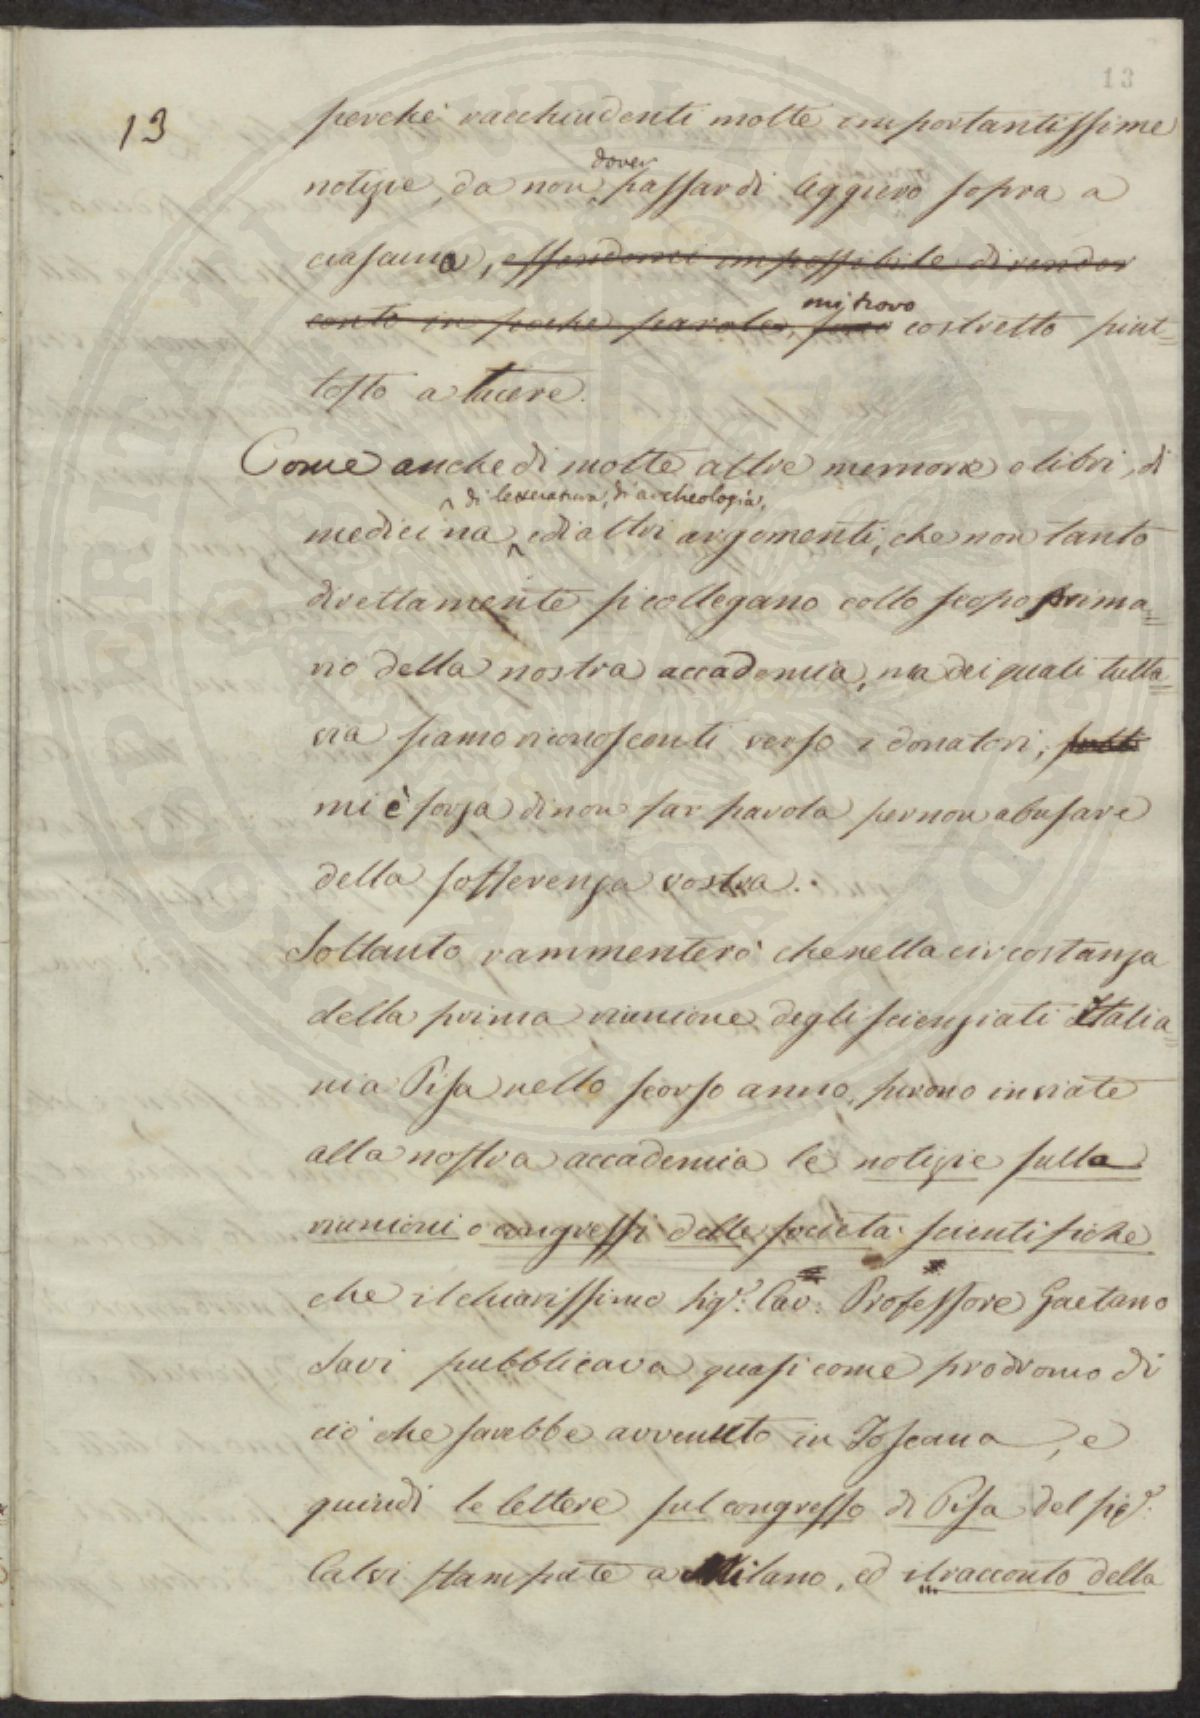 13
13
perchè racchiudenti molte importantissime
notizie, da non dover passar di leggiero sopra a
ciascuna, essendomi impossibile di render
conto in poche parole, sono mi trovo costretto piut=
tosto a tacere.
Come anche di molte altre memorie e libri, di
medicina, di letteratura, di archeologia, e di altri argomenti, che non tanto
direttamente si collegano collo scopo prima=
rio della nostra accademia, ma dei quali tutta=
via siamo riconoscenti verso i donatori,
mi è forza di non far parola per non abusare
della sofferenza vostra.
Soltanto rammenterò che nella circostanza
della prima riunione degli scienziati Italia=
ni a Pisa nello scorso anno, furono inviate
alla nostra accademia le notizie sulla
riunioni o congressi delle società scientifiche
che il chiarissimo sigr: Cav: Professore Gaetano
Savi pubblicava quasi come prodromo di
ciò che sarebbe avvenuto in Toscana, e
quindi le lettere sul congresso di Pisa del sigr:
Calvi stampate a Milano, ed il racconto della